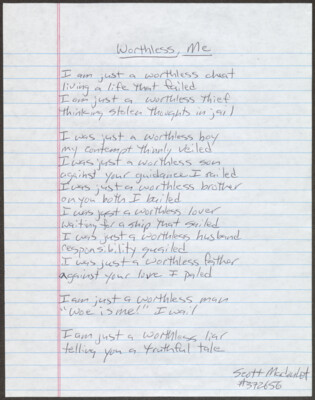 Worthless, Me
I am just a worthless cheat
living a life that failed
I am just a worthless thief
thinking stolen thoughts in jail
I was just a worthless boy
my contempt thinly veiled
I was just a worthless son
against your guidance I railed
I was just a worthless brother
on you both I bailed
I was just a worthless lover
waiting for a ship that sailed
I was just a worthless husband
responsibility quailed
I was just a worthless father
against your love I paled
I am just a worthless man
"Woe is me!" I wail
I am just a worthless liar
telling you a truthful tale
Scott
#372656